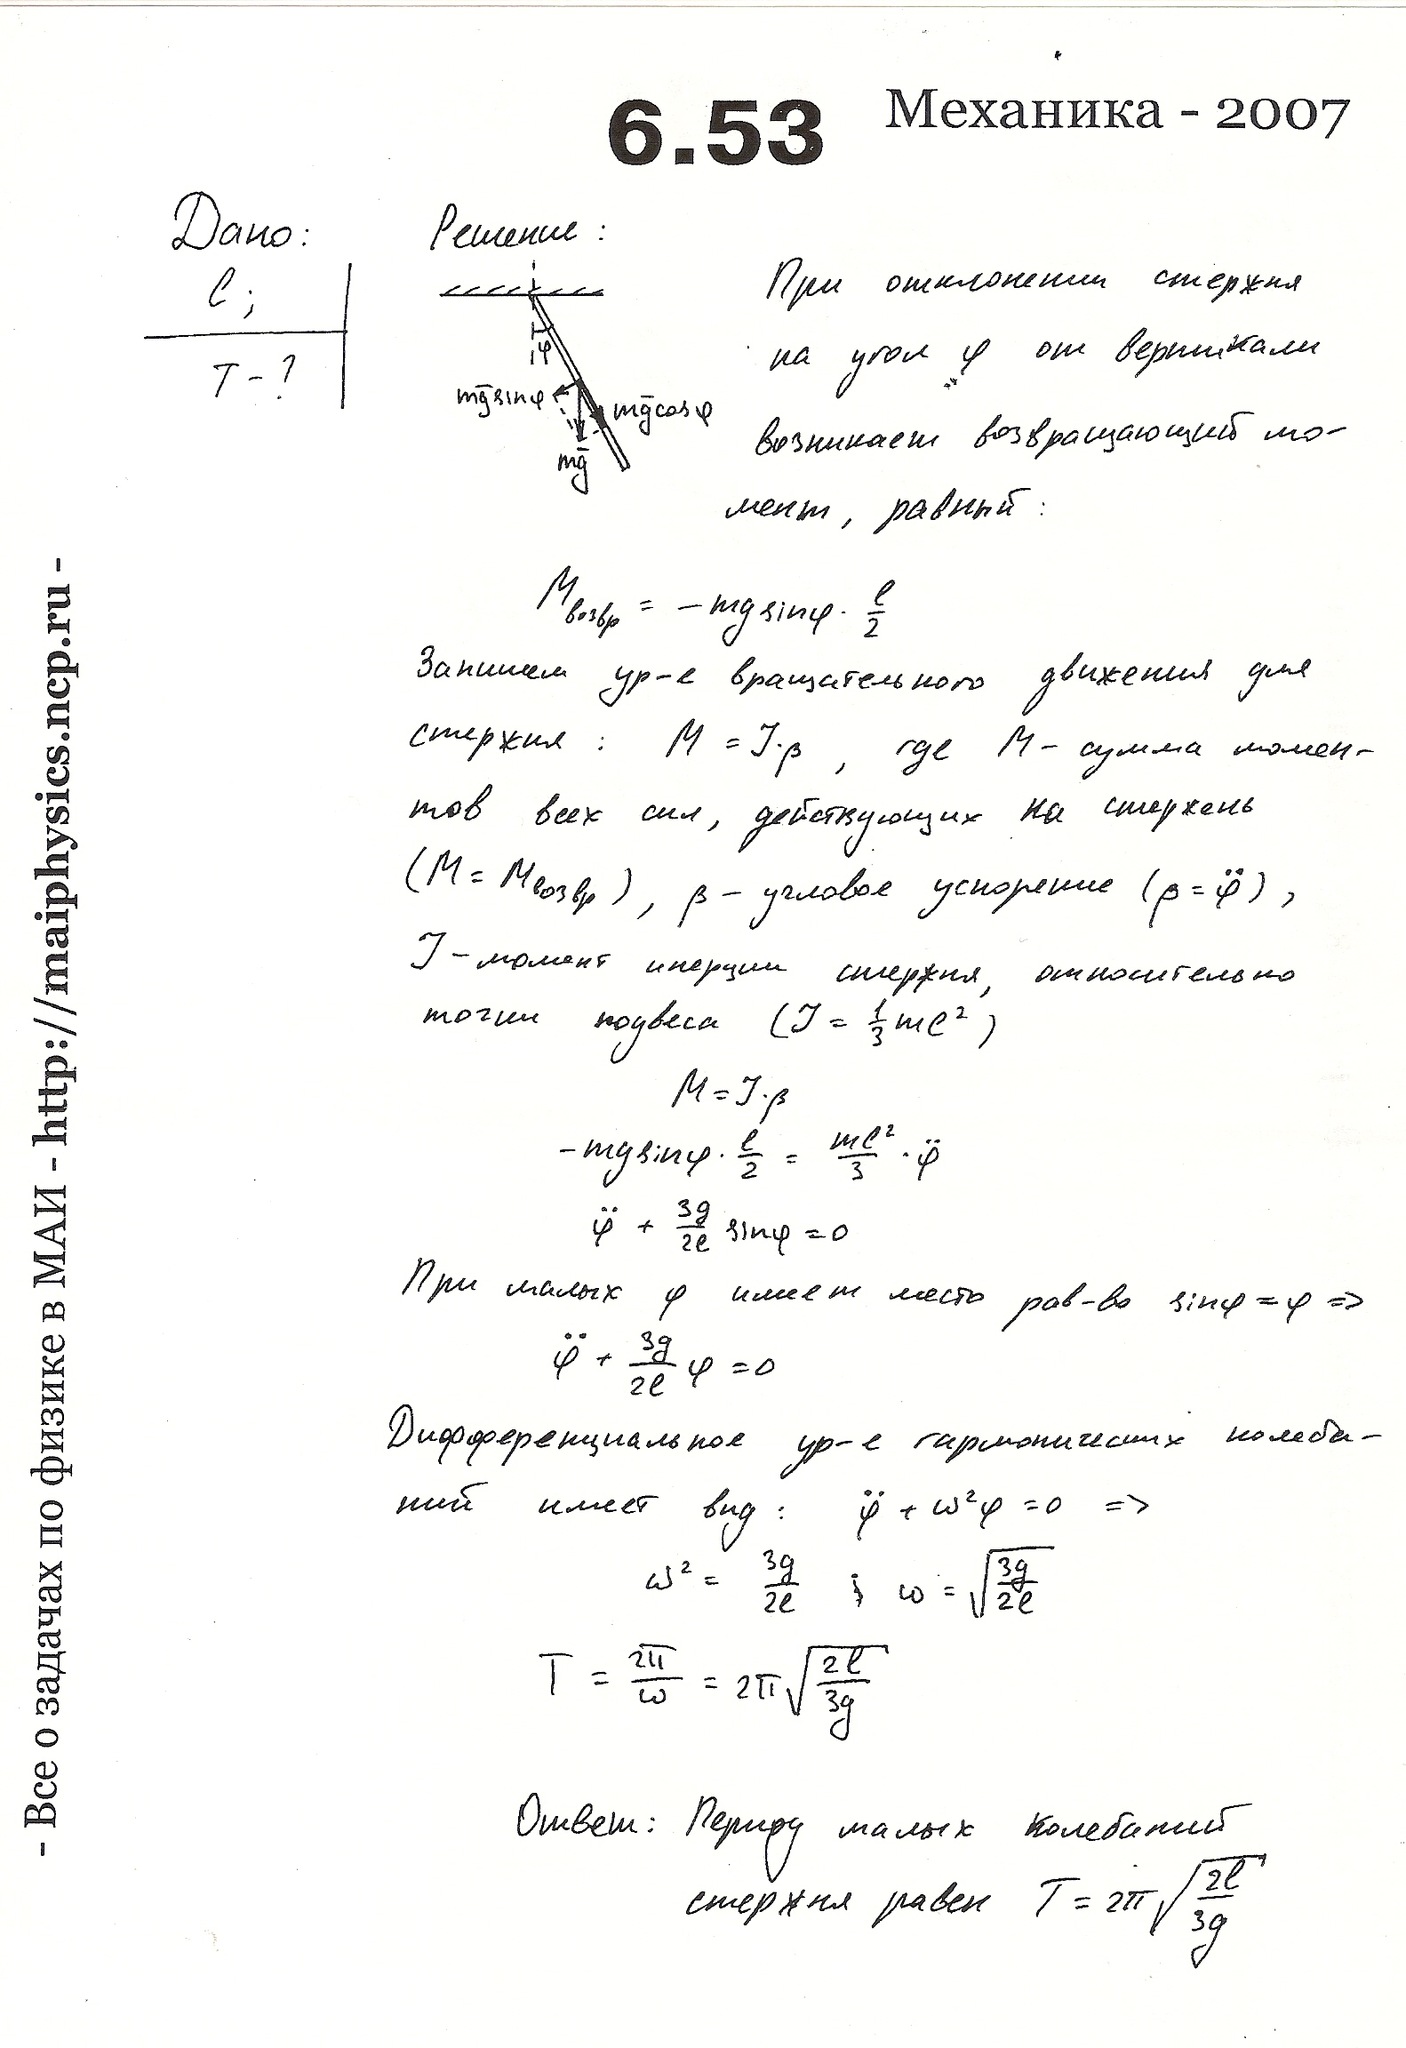 6.53 Механика - 2007
Дано:
l;
T - ?
Решение:
φ
mḡsinφ
mḡcosφ
mḡ
При отклонении стержня
на угол φ от вертикали
возникает возвращающий мо-
мент, равный:
Mвозвр = -mgsinφ · l/2
Запишем ур-е вращательного движения для
стержня: M = J·β, где M - сумма момен-
тов всех сил, действующих на стержень
(M = Mвозвр), β - угловое ускорение (β = φ̈),
J - момент инерции стержня, относительно
точки подвеса (J = 1/3 ml²)
M = J·β
-mgsinφ · l/2 = ml²/3 · φ̈
φ̈ + 3g/2l sinφ = 0
При малых φ имеет место рав-во sinφ = φ =>
φ̈ + 3g/2l φ = 0
Дифференциальное ур-е гармонических колеба-
ний имеет вид: φ̈ + ω²φ = 0 =>
ω² = 3g/2l ; ω = √(3g/2l)
T = 2π/ω = 2π√(2l/3g)
Ответ: Период малых колебаний
стержня равен T = 2π√(2l/3g)
- Все о задачах по физике в МАИ - http://maiphysics.ncp.ru -